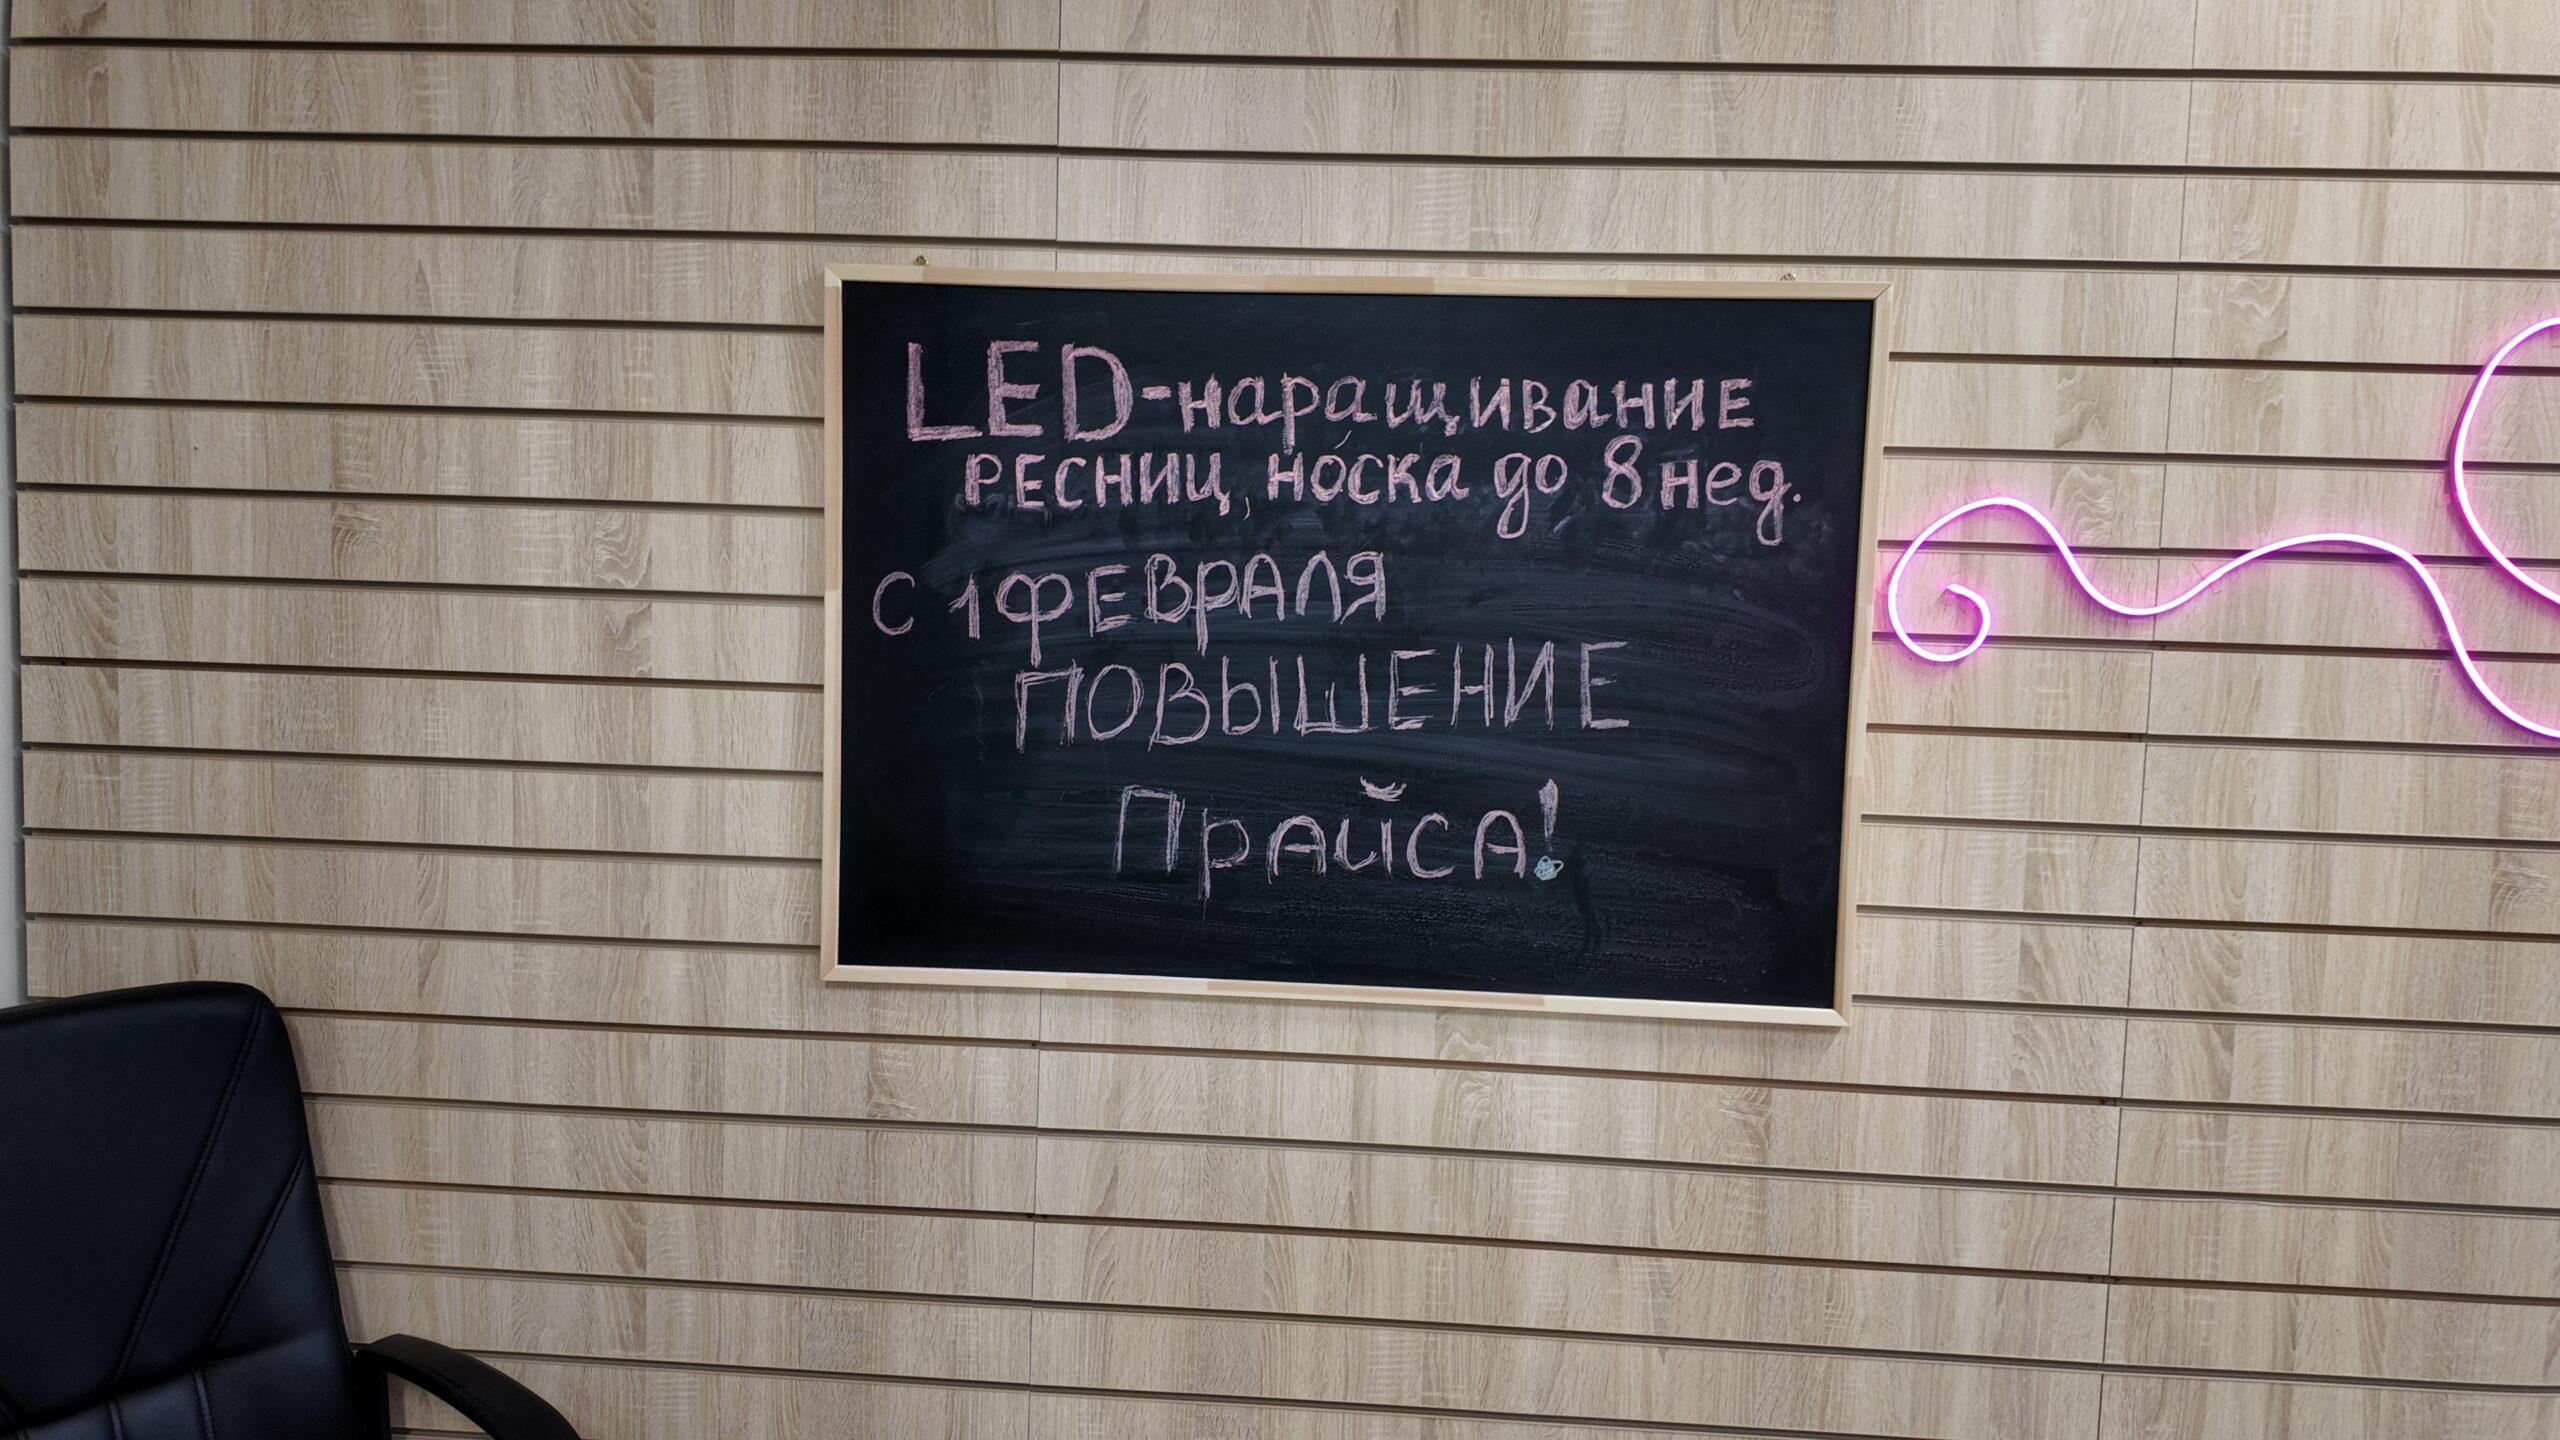 LED-наращивание
ресниц, но́ска до 8 нед.
С 1 ФЕВРАЛЯ
ПОВЫШЕНИЕ
Прайса!